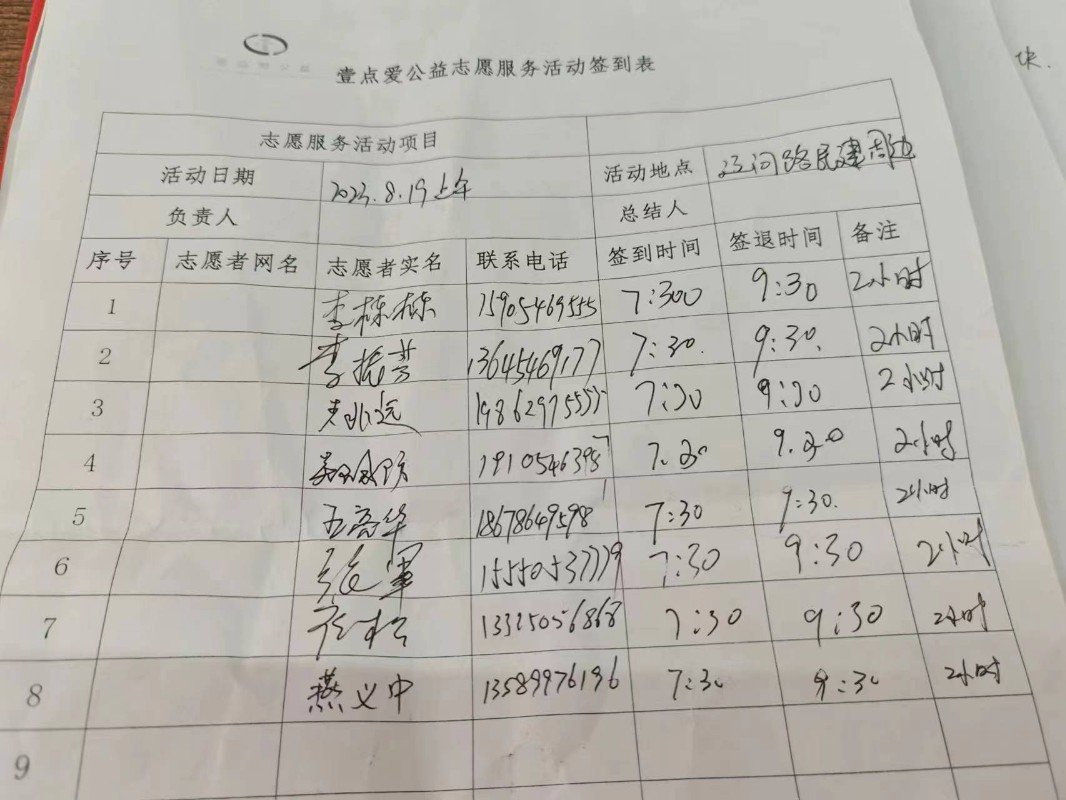 壹点爱公益志愿服务活动签到表
块.
志愿服务活动项目
活动日期 2023.8.19上午 活动地点 路民建周边
负责人 总结人
序号 志愿者网名 志愿者实名 联系电话 签到时间 签退时间 备注
1 李栋栋 15905469555 7:300 9:30 2小时
2 李振芳 13645469177 7:30. 9:30. 2小时
3 19862975555 7:30 9:30 2小时
4 7.30 9.30 2小时
5 王高华 18678649598 7:30 9:30. 2小时
6 张军 15550537779 7:30 9:30 2小时
7 13325056868 7:30 9:30 2小时
8 燕义中 13589976196 7:30 9:30 2小时
9